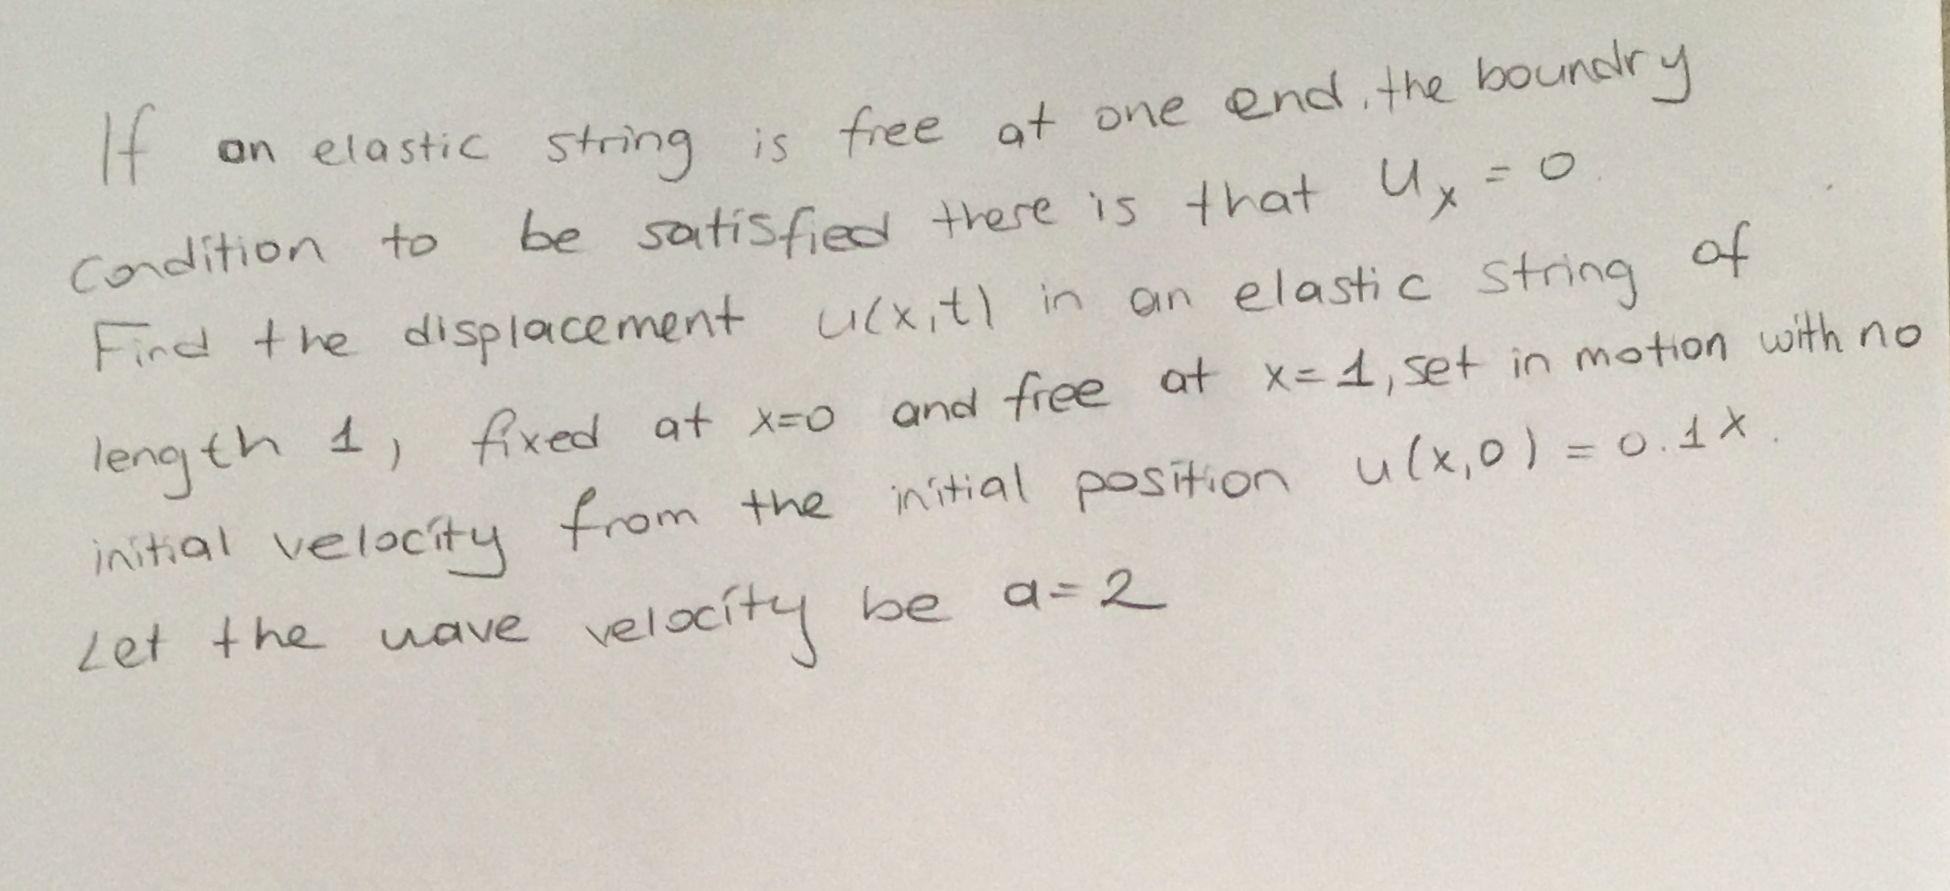 If an elastic string is free at one end, the boundry
condition to be satisfied there is that Ux = 0.
Find the displacement u(x,t) in an elastic string of
length 1, fixed at x=0 and free at x=1, set in motion with no
initial velocity from the initial position u(x,0) = 0.1x.
Let the wave velocity be a=2